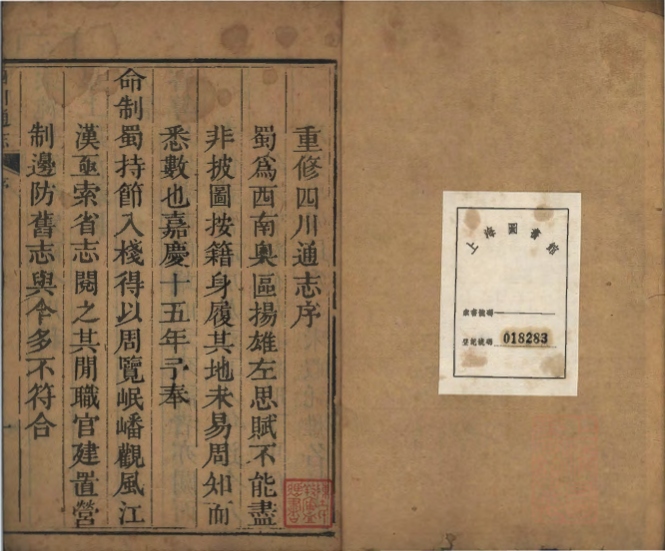 重修四川通志序
蜀為西南奧區揚雄左思賦不能盡
非披圖按籍身履其地未易周知而
悉數也嘉慶十五年予奉
命制蜀持節入棧得以周覽岷嶓觀風江
漢亟索省志閱之其閒職官建置營
制邊防舊志與今多不符合
川通志
序
上海圖書館
索書號碼
登記號碼 018283